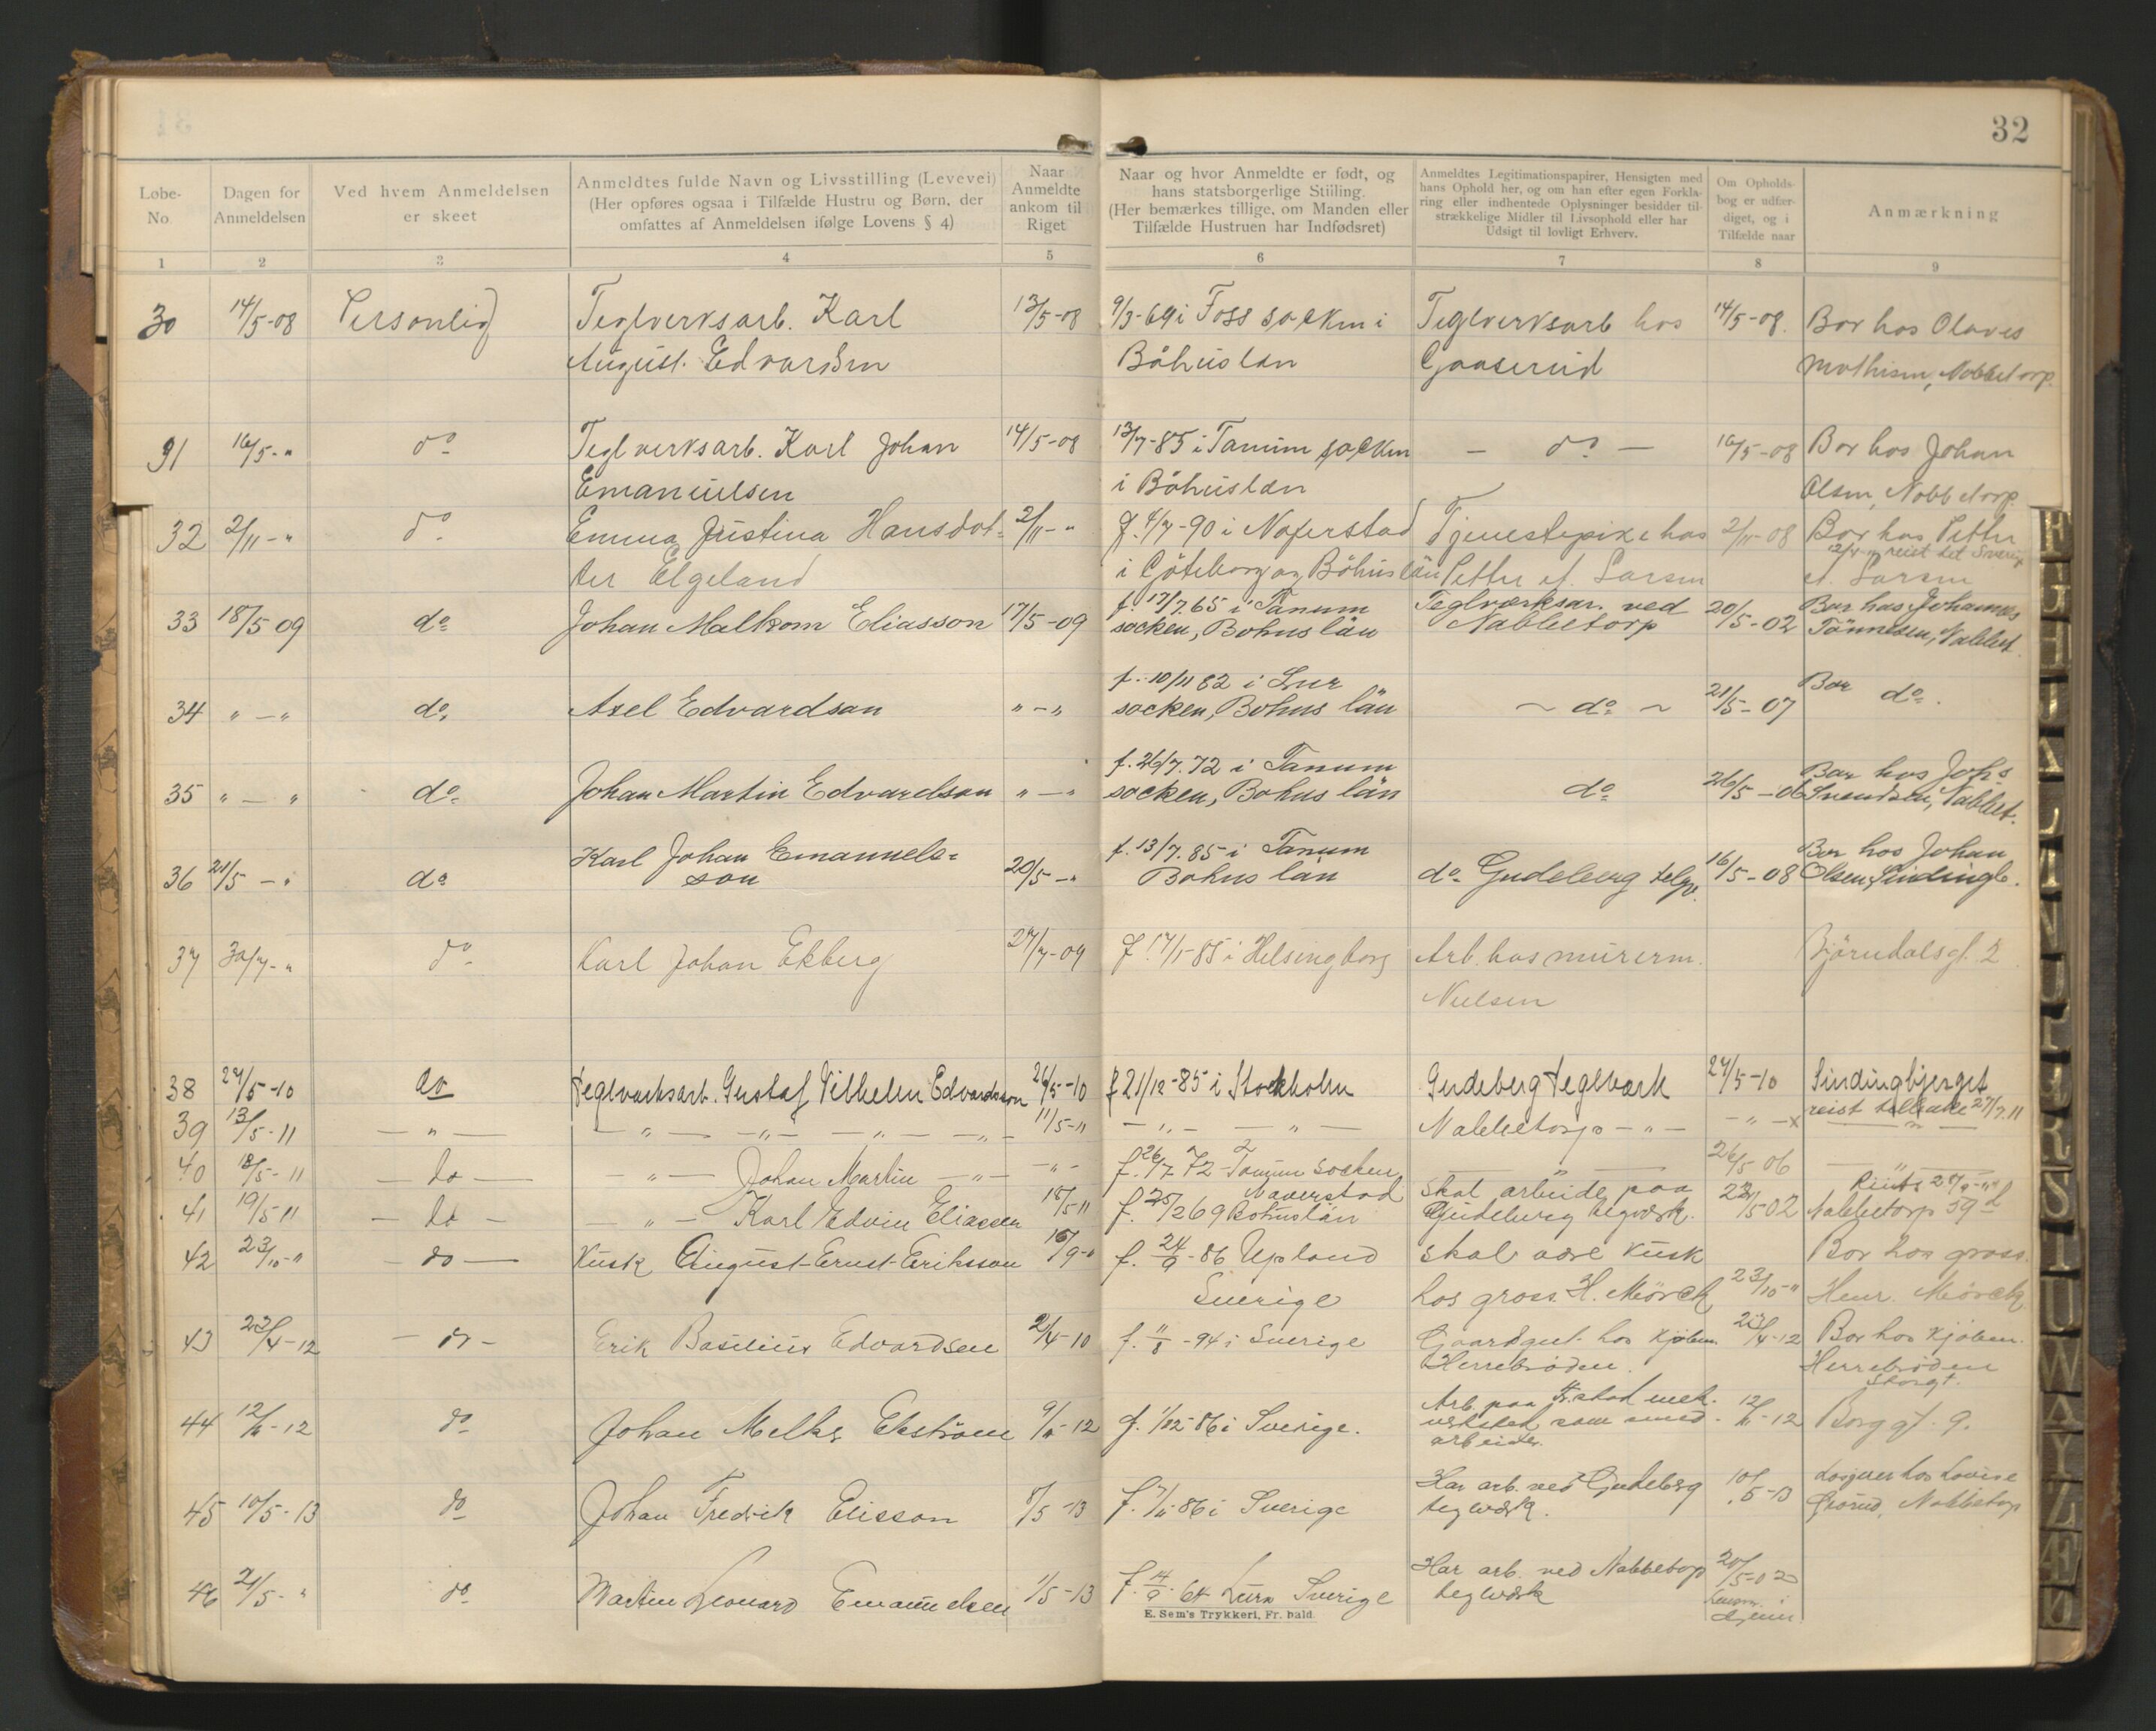 32
Løbe-No
Dagen for Anmeldelsen
Ved hvem Anmeldelsen er skeet
Anmeldtes fulde Navn og Livsstilling (Levevei)
(Her opføres ogsaa i Tilfælde Hustru og Børn, der
omfattes af Anmeldelsen ifølge Lovens § 4)
Naar Anmeldte ankom til Riget
Naar og hvor Anmeldte er født, og
hans statsborgerlige Stilling.
(Her bemærkes tillige, om Manden eller
Tilfælde Hustruen har Indfødsret)
Anmeldtes Legitimationspapirer, Hensigten med
hans Ophold her, og om han efter egen Forkla-
ring eller indhentede Oplysninger besidder til-
strækkelige Midler til Livsophold eller har
Udsigt til lovligt Erhverv.
Om Opholds-
bog er udfær-
diget, og i
Tilfælde naar
Anmærkning
1 2 3 4 5 6 7 8 9
30 14/5-08 Personlig Teglverksarb. Karl 13/5-08 9/3-69 i Foss socken i Teglverksarb hos 14/5-08. Bor hos Olaves
August. Edvardsen Båhuslän Gaaserud Mathisen, Nabbetorp.
31 16/5-" do Teglverksarb. Karl Johan 14/5-08 13/7-85 i Tanum socken - do - 16/5-08 Bor hos Johan
Emanuelsen i Båhuslän Olsen, Nabbetorp
32 2/11-" do Emma Justina Hansdot- 2/11-" f. 4/7-90 i Naferstad Tjenestepike hos 2/11-08 Bor hos Petter
ter Elgeland i Göteborg og Båhuslän Petter ef. Larsen ef. Larsen
33 18/5 09 do Johan Malkom Eliasson 17/5-09 f. 17/7.65 i Tanum Teglværksar. ved 20/5-02 Bor hos Johannes
socken, Bohus län Nabbetorp Tönnesen, Nabbet.
34 " - " do Axel Edvardson " - " f. 10/11 82 i Lur
socken, Bohus län ~ do ~ 21/5-07 Bor do.
35 " - " do Johan Martin Edvardson " - " f. 26/7.72 i Tanum
socken, Bohus län do 26/5-06 Bor hos Johs
Svendsen, Nabbet.
36 21/5 - " do Karl Johan Emanuels-
son 20/5-" f. 13/7.85 i Tanum
Bohus län do Gudeberg telgv. 16/5-08 Bor hos Johan
Olsen, Sindingb.
37 30/7-" do Karl Johan Ekberg 27/7-09 f 17/1-85 i Helsingborg Arb. hos murerm. Bjørndalsgt. 2
Nielsen
38 27/5-10 do Teglværksarb. Gustaf Vilhelm Edvardsson 26/5-10 f 21/12-85 i Stockholm Gudeberg teglværk 27/5-10 Sindingbjerget
reist tilbake 27/7.11
39 13/5-11 - " - - " - - " - - " - - " - 11/5-11 - " - - " - Nabbetorp - " - - " -
40 18/5-11 - do - - " - Johan Martin - " - - " - f. 26/7 72 - Tanum socken - " - 26/5 06
41 19/5 11 - do - - " - Karl Edvin Eliassen 18/5 11 f. 25/2 69 Naverstad Bohuslän skal arbeide paa Gudeberg teglværk. 22/5-02 Nabbetorp 59 d
42 23/10-" - do - Kusk August Ernst Eriksson f. 24/9-86 Upland skal være kusk Bor hos gross.
Sverige hos gross. H. Mørck 23/10-" Henr. Mørck
43 23/4-12 - do - Erik Basilius Edvardsen 2/4-10 f. 11/8-94 i Sverige Gaardsgut hos Kjøbm. 23/4-12 Bor hos Kjøbm.
Herrebrøden. Herrebrøden
Storgt.
44 do Johan Melker Ekström f. 1/12-86 i Sverige. Arb. paa Fr.stad mek. Borggt. 9.
verksted som smed-
arbeider.
45 10/5-13 do Johan Fredrik Elisson 8/5-13 f. 7/11-86 i Sverige Har arb. ved Gudeberg 10/5-13 Losjerer hos Lovise
teglværk. Nabbetorp
46 21/5-" do Martin Leonard Emanuelsen 1/5-13 f. 14/9-64 Lurs Sverige Har arb. ved Nabbetorp 20/5-02
teglværk
E. Sem's Trykkeri, Fr. hald.
F G H I K L M N O P R S T U W A Y Z Æ Ø